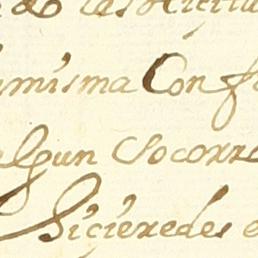 de las
misma Con
algun Socorro
hicieredes e